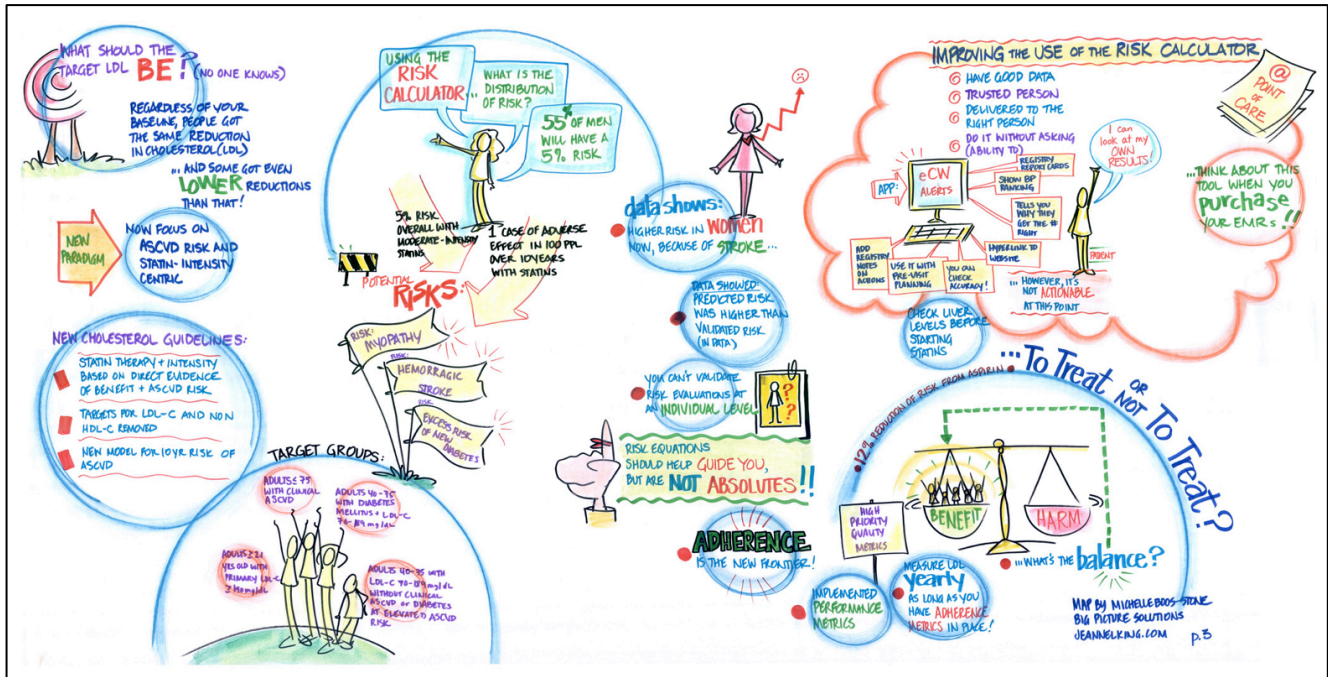 WHAT SHOULD THE
TARGET LDL BE? (NO ONE KNOWS)
REGARDLESS OF YOUR
BASELINE, PEOPLE GOT
THE SAME REDUCTION
IN CHOLESTEROL (LDL)
... AND SOME GOT EVEN
LOWER REDUCTIONS
THAN THAT!
NEW
PARADIGM
NOW FOCUS ON
ASCVD RISK AND
STATIN-INTENSITY
CENTRIC
NEW CHOLESTEROL GUIDELINES:
STATIN THERAPY + INTENSITY
BASED ON DIRECT EVIDENCE
OF BENEFIT + ASCVD RISK
TARGETS FOR LDL-C AND NON
HDL-C REMOVED
NEW MODEL FOR 10YR RISK OF
ASCVD
USING THE
RISK
CALCULATOR
WHAT IS THE
... DISTRIBUTION
OF RISK?
55% OF MEN
WILL HAVE A
5% RISK
5% RISK
OVERALL WITH
MODERATE-INTENSITY
STATINS
1 CASE OF ADVERSE
EFFECT IN 100 PPL
OVER 10 YEARS
WITH STATINS
POTENTIAL
RISKS:
RISK:
MYOPATHY
RISK:
HEMORRAGIC
STROKE
RISK
EXCESS RISK
OF NEW
DIABETES
TARGET GROUPS:
ADULTS ≤ 75
WITH CLINICAL
ASCVD
ADULTS 40-75
WITH DIABETES
MELLITUS + LDL-C
70-189 mg/dL
ADULTS ≥ 21
YRS OLD WITH
PRIMARY LDL-C
≥ 190 mg/dL
ADULTS 40-75 WITH
LDL-C 70-189 mg/dL
WITHOUT CLINICAL
ASCVD OR DIABETES
AT ELEVATED ASCVD
RISK
data shows:
HIGHER RISK IN WOMEN
NOW, BECAUSE OF STROKE...
DATA SHOWED:
PREDICTED RISK
WAS HIGHER THAN
VALIDATED RISK
(IN DATA)
YOU CAN'T VALIDATE
RISK EVALUATIONS AT
AN INDIVIDUAL LEVEL
? ? ?
RISK EQUATIONS
SHOULD HELP GUIDE YOU,
BUT ARE NOT ABSOLUTES!!
ADHERENCE
IS THE NEW FRONTIER!
IMPROVING THE USE OF THE RISK CALCULATOR
HAVE GOOD DATA
TRUSTED PERSON
DELIVERED TO THE
RIGHT PERSON
DO IT WITHOUT ASKING
(ABILITY TO)
APP:
eCW
ALERTS
REGISTRY
REPORT CARDS
SHOW BP
RANKING
TELLS YOU
WHY THEY
GET THE #
RIGHT
HYPERLINK TO
WEBSITE
YOU CAN
CHECK
ACCURACY!
USE IT WITH
PRE-VISIT
PLANNING
ADD
REGISTRY
NOTES
ON
ACTIONS
I can
look at my
OWN
RESULTS!
PATIENT
... HOWEVER, IT'S
NOT ACTIONABLE
AT THIS POINT
@
POINT
OF
CARE
...THINK ABOUT THIS
TOOL WHEN YOU
PURCHASE
YOUR EMRs!!
CHECK LIVER
LEVELS BEFORE
STARTING
STATINS
...TO TREAT OR NOT TO TREAT?
12% REDUCTION OF RISK FROM ASPIRIN
BENEFIT
HARM
...WHAT'S THE balance?
HIGH
PRIORITY
QUALITY
METRICS
IMPLEMENTED
PERFORMANCE
METRICS
MEASURE LDL
yearly
AS LONG AS YOU
HAVE ADHERENCE
METRICS IN PLACE!
MAP BY MICHELLE BOOS-STONE
BIG PICTURE SOLUTIONS
JEANNELKING.COM p.3